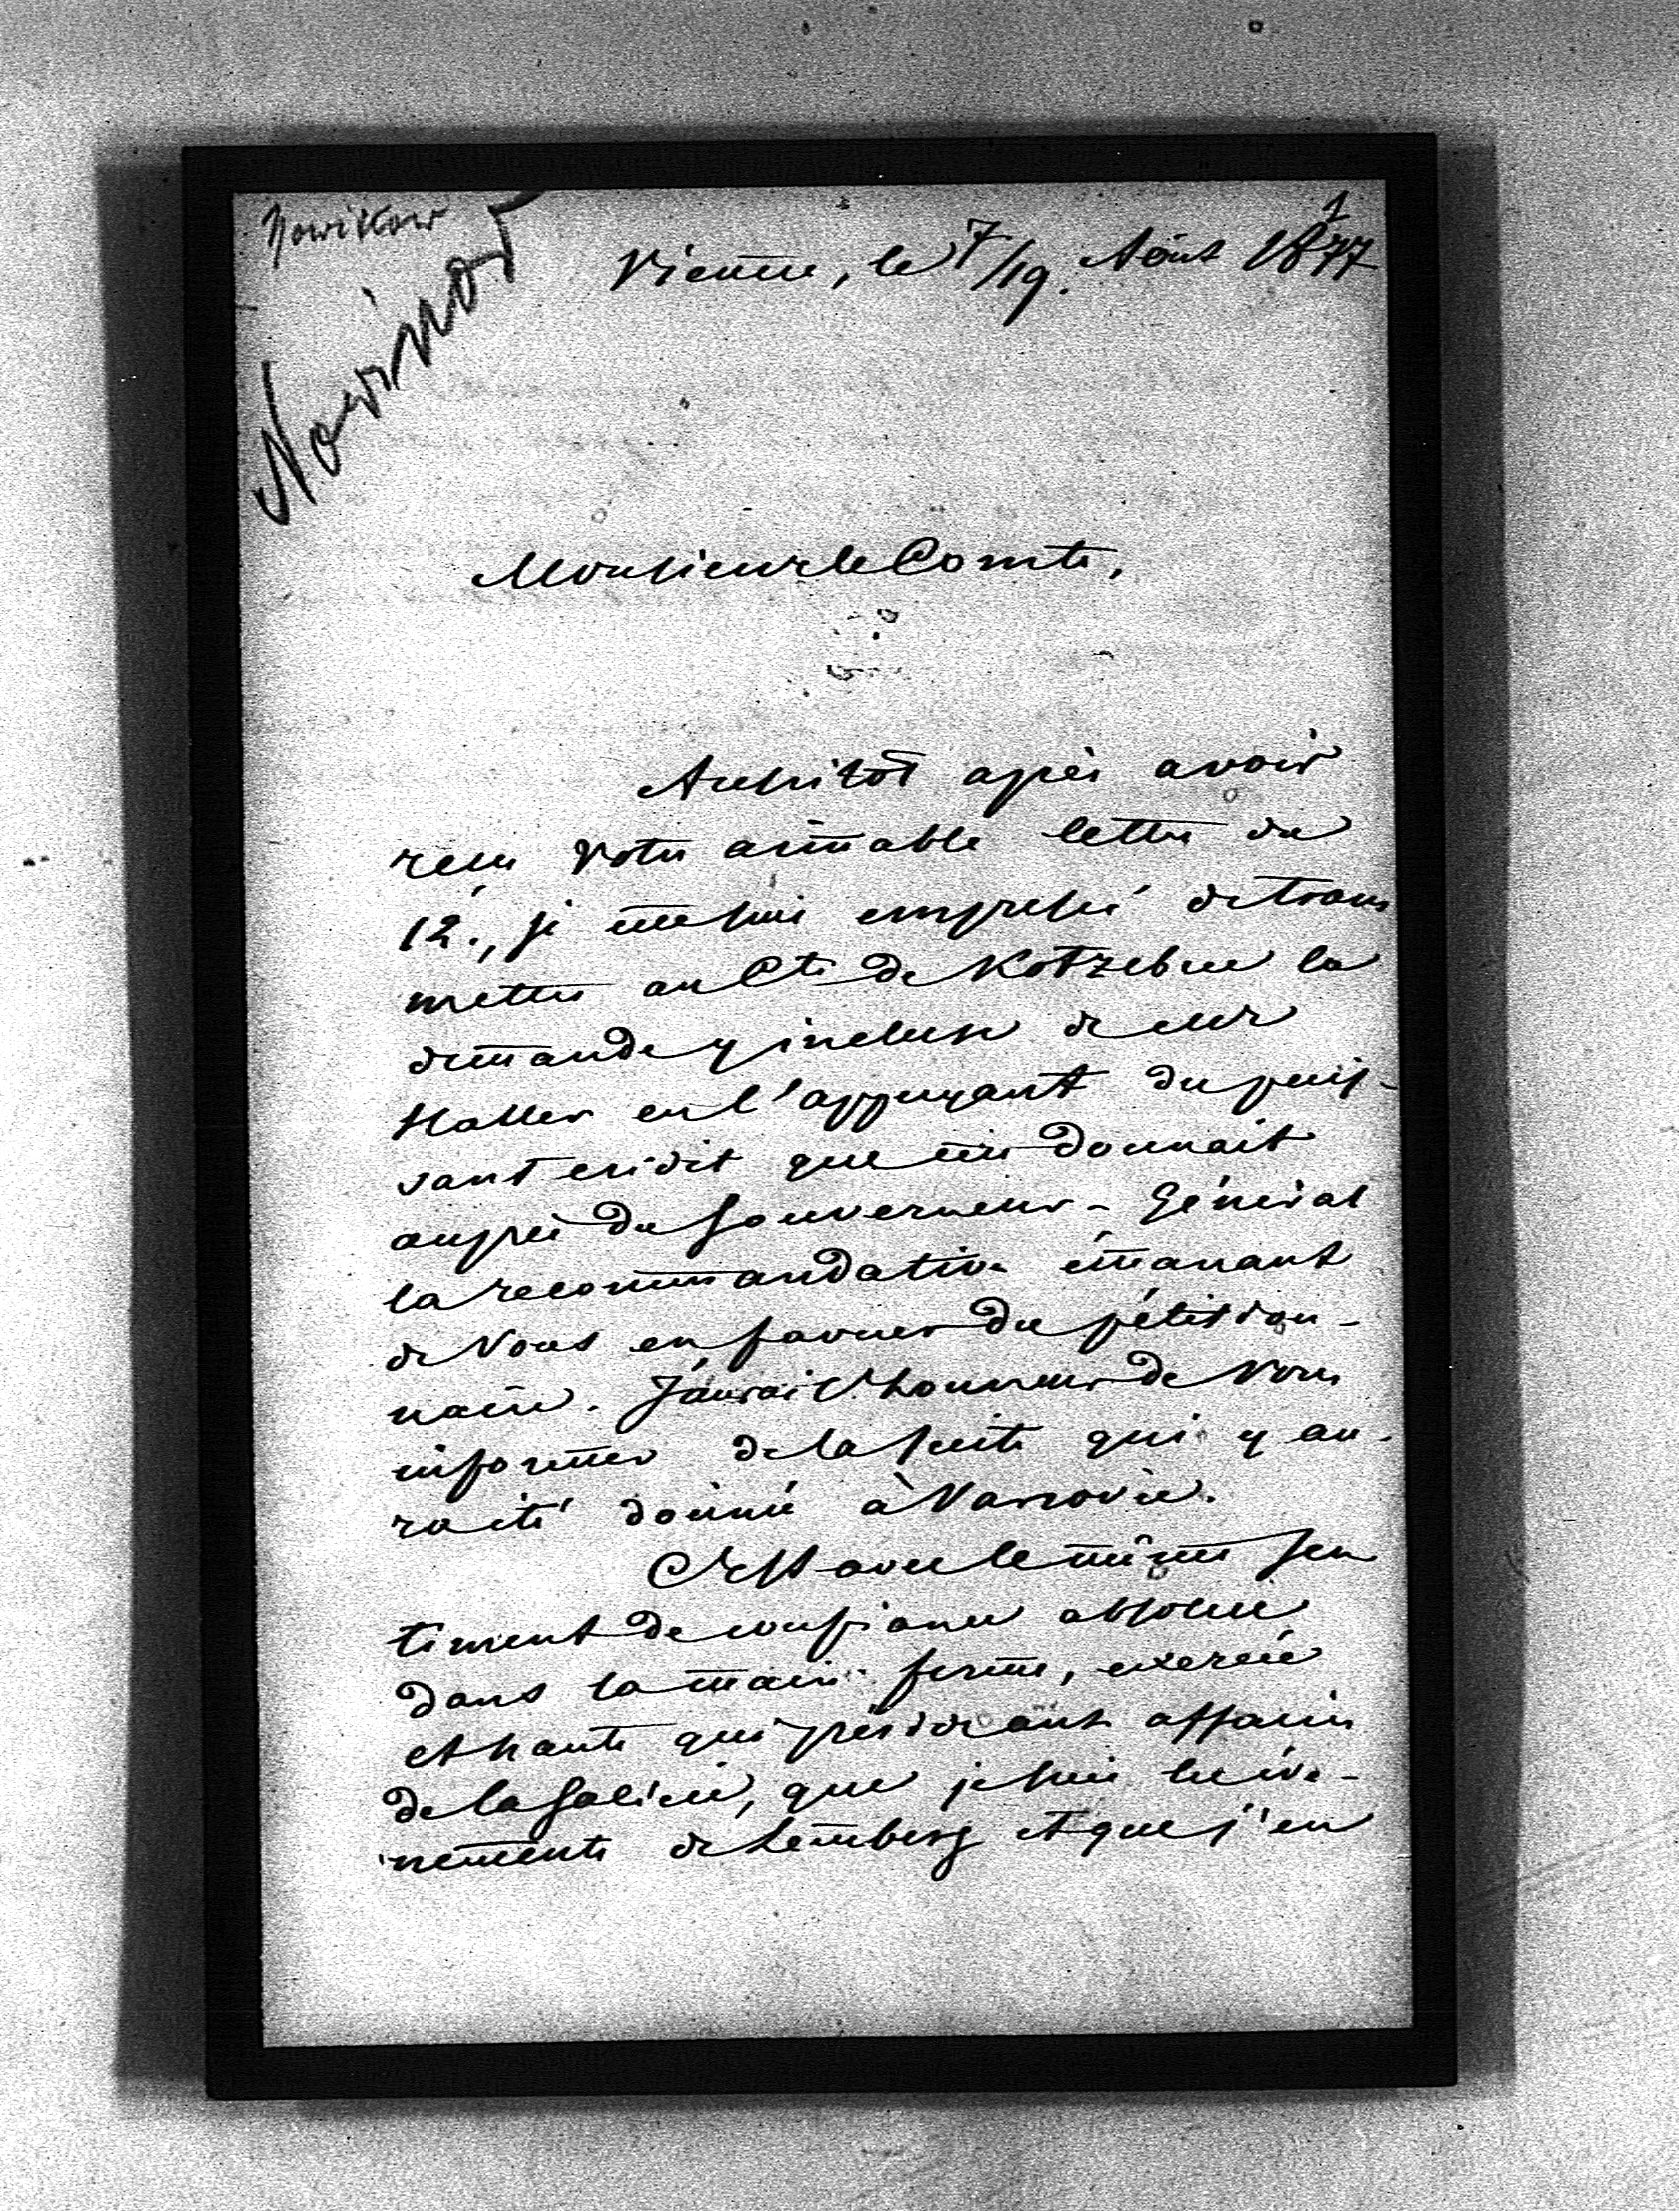 Nowikow
Nowikof
1
Vienne, le 7/19. Août 1877
Monsieur le Comte,
Aussitôt après avoir
reçu Votre aimable lettre du
12., je me suis empressé de trans
mettre au Cte de Kotzebue la
demande y incluse de Mr
Haller en l'appuyant du puis-
sant crédit que me donnait
auprès du Gouverneur-Général
la recommandation émanant
de Vous en faveur du pétition-
naire. J'aurai l'honneur de Vous
informer de la suite qui y au-
ra été donnée à Varsovie.
C'est avec le même sen
timent de confiance absolue
dans la main ferme, exercée
et haute qui préside aux affaires
de la Galicie, que je suis les évé-
nements de Lemberg et que j'en